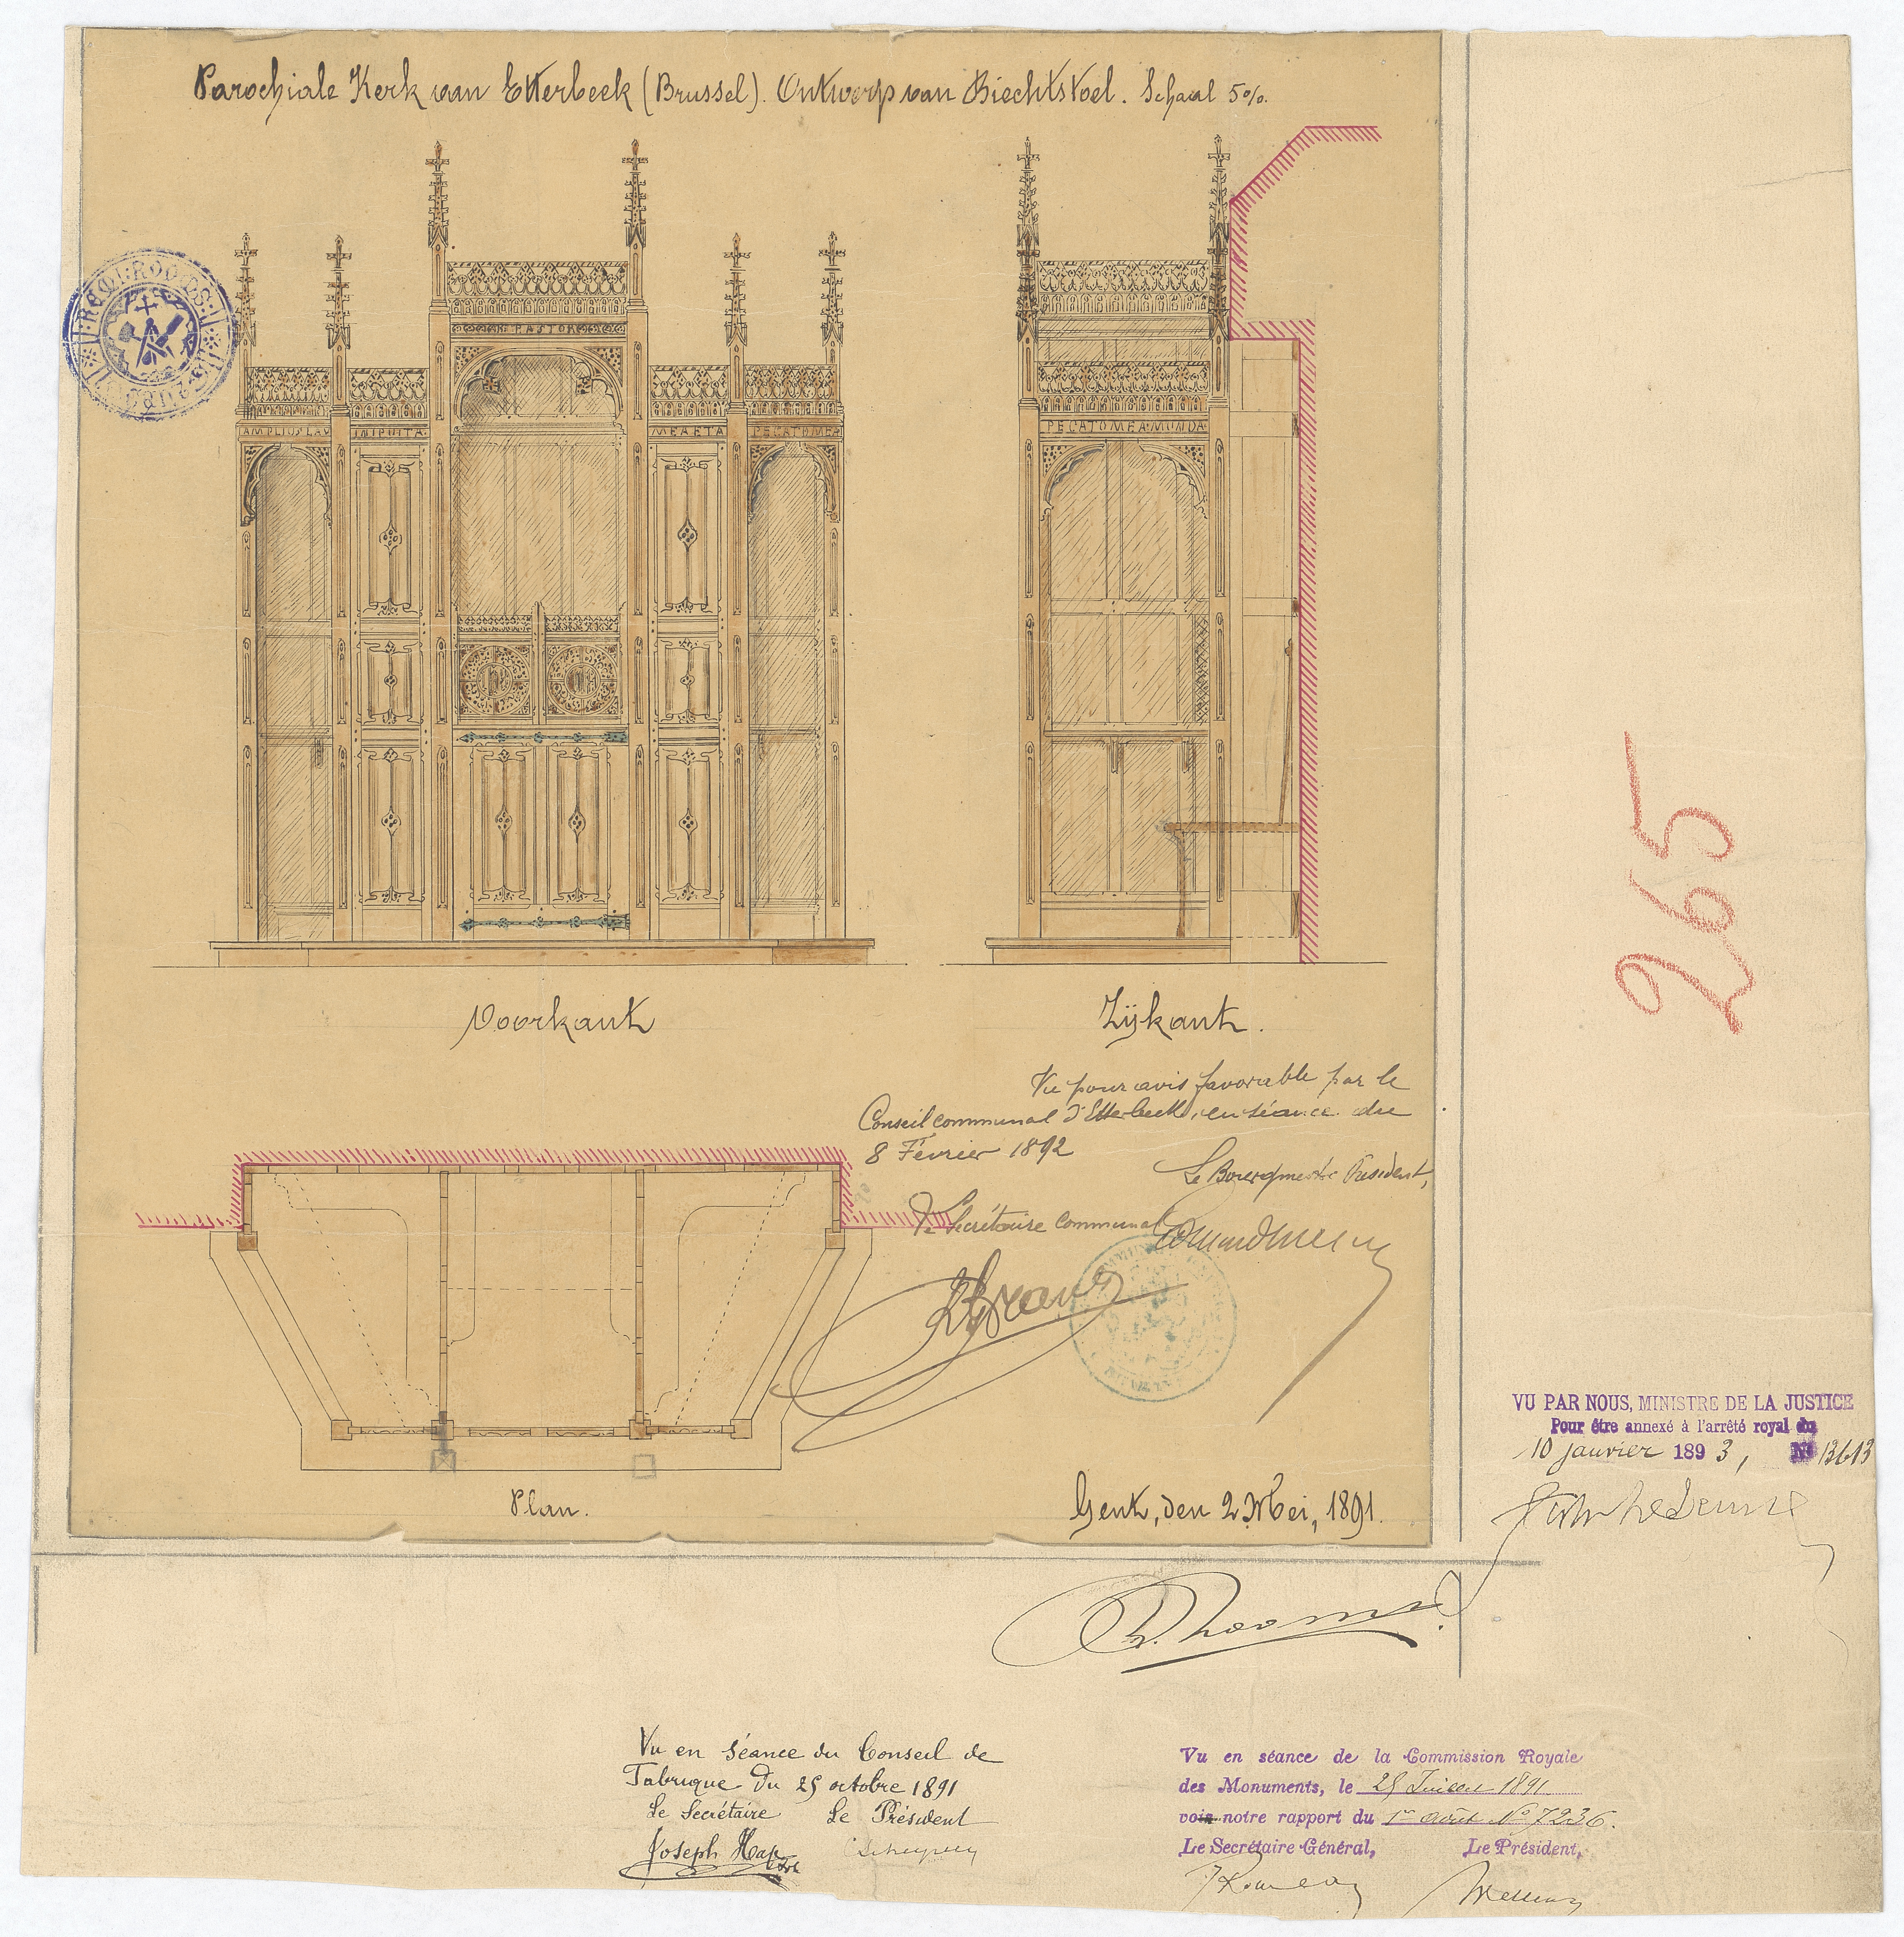 Parochiale Kerk van Etterbeek (Brussel). Ontwerp van Biechtstoel. Schaal 5%.
REMI ROOMS
PASTOR
AMPLIUS LAV
INIQUITA
MEA ETA
PECATO MEA
PECATO MEA MUNDA
Voorkant
Zijkant.
Vu pour avis favorable par le
Conseil communal d'Etterbeek, en séance du
8 Février 1892
Le Bourgmestre Président,
Le Secrétaire Communal
Plan.
Gent, den 2 Mei, 1891.
265
VU PAR NOUS, MINISTRE DE LA JUSTICE
Pour être annexé à l'arrêté royal du
10 janvier 1893, No 13613
R. Rooms
Vu en séance du Conseil de
Fabrique du 25 octobre 1891
Le Secrétaire Le Président
Joseph Hap
Vu en séance de la Commission Royale
des Monuments, le 25 Juillet 1891
voir notre rapport du 1er Août No 7236.
Le Secrétaire Général, Le Président,